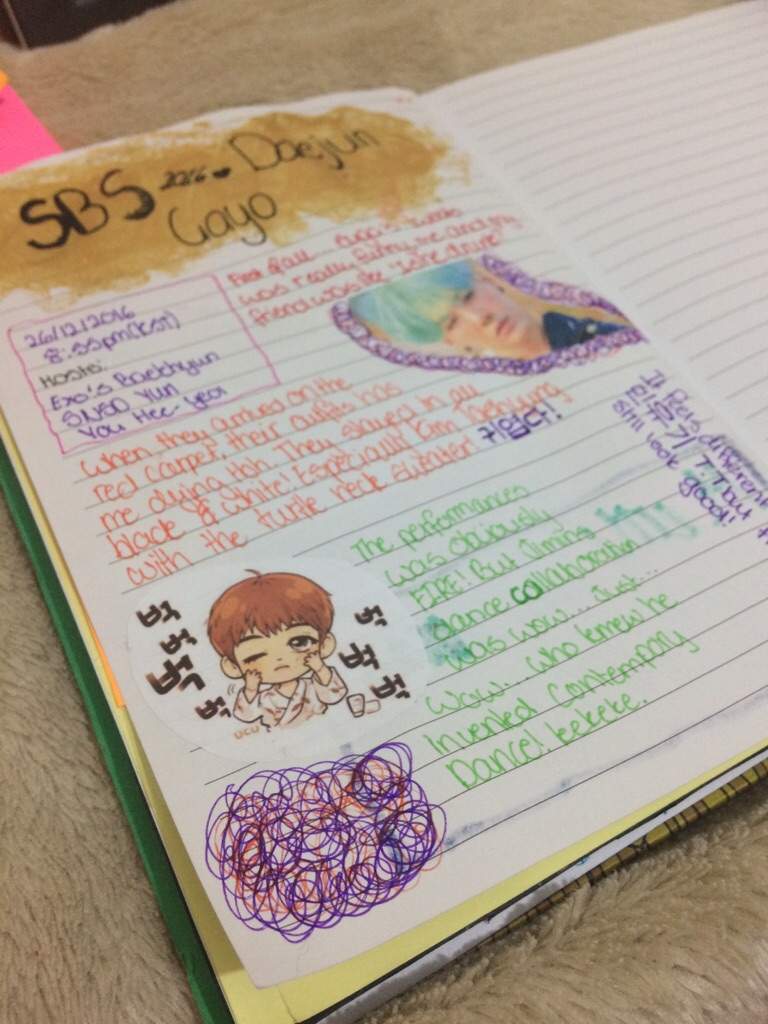 SBS 2016 Daejun
Gayo
26/12/2016
8:55pm (KST)
Hosts:
Exo's Baekhyun
SNSD Yuri
You Hee-yeol
First of all
was really funny, me and my
friend was like
When they arrived on the
red carpet, their outfits has
me dying tbh. They slayed in all
black & white! Especially Kim Taehyung
with the turtle neck sweater! 귀엽다!
different
민윤기 T.T but
still look good!
The performances
was obviously
FIRE! But Jimins
dance collaboration
was wow... Just...
wow... who knew he
Invented Contempory
Dance! kekeke.
벅
벅
벅
벅
벅
벅
벅
UCU